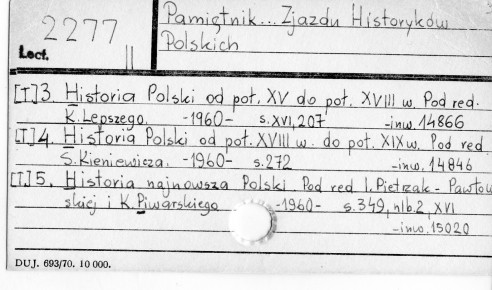 2277 ||
Lect.
Pamiętnik... Zjazdu Historyków
Polskich
[T.]3. Historia Polski od poł. XV do poł. XVIII w. Pod red.
K. Lepszego. -1960- s. XVI, 207 -inw. 14866
[T.]4. Historia Polski od poł. XVIII w. do poł. XIX w. Pod red
S. Kieniewicza. -1960- s. 272 -inw. 14846
[T.]5. Historia najnowsza Polski. Pod red. I. Pietrzak-Pawłow
skiej i K. Piwarskiego -1960- s. 349, nlb. 2, XVI
-inw. 15020
DUJ. 693/70. 10 000.